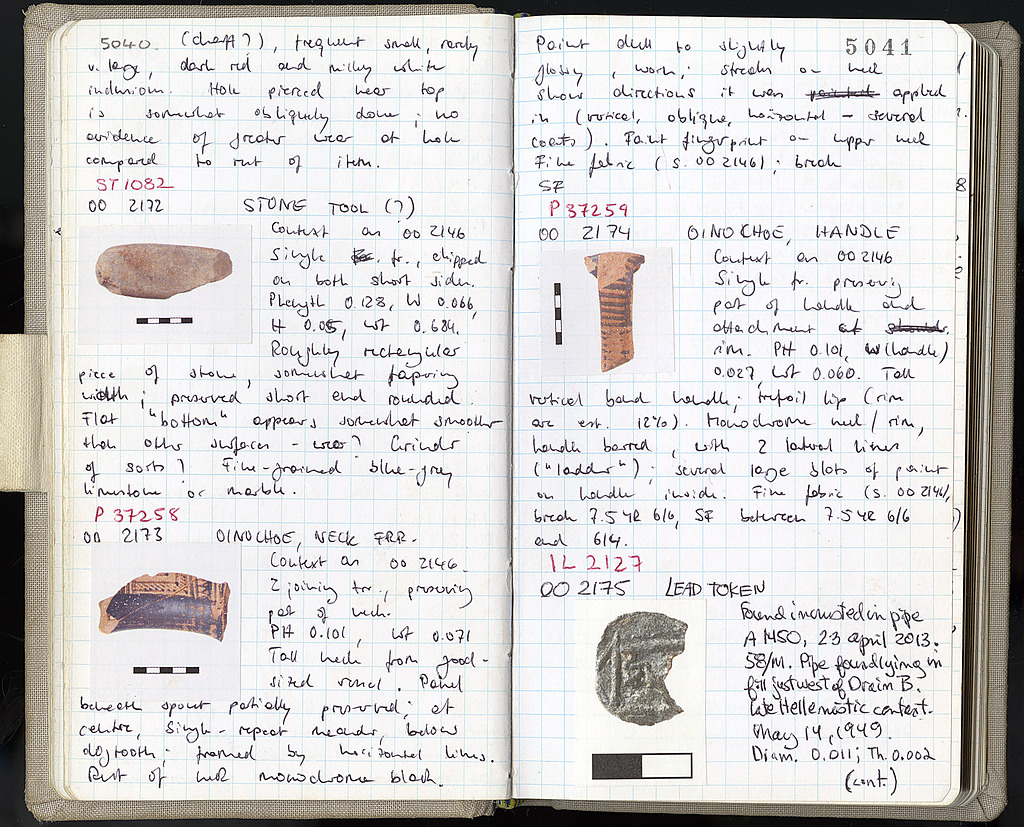 5040. (chaff?), frequent small, rarely
v. large, dark red and milky white
inclusions. Hole pierced near top
is somewhat obliquely done; no
evidence of greater wear at hole
compared to rest of item.
ST1082
OO 2172 STONE TOOL (?)
Context as OO 2146
Single fr., chipped
on both short sides.
P length 0.128, W 0.066,
H 0.05, wt 0.684.
Roughly rectangular
piece of stone, somewhat tapering
width; preserved short end rounded.
Flat "bottom" appears somewhat smoother
than other surfaces - wear? Grinder
of sorts? Fine-grained blue-grey
limestone or marble.
P 37258
OO 2173 OINOCHOE, NECK FRR.
Context as OO 2146.
2 joining frr., preserving
part of neck.
PH 0.101, wt 0.071
Tall neck from good-
sized vessel. Panel
beneath spout partially preserved; at
centre, single-repeat meander, below
dogtooth; framed by horizontal lines.
Rest of neck monochrome black.
5041
Paint dull to slightly
glossy, worn; streaks on neck
show directions it was painted applied
in (vertical, oblique, horizontal - several
coats). Paint fingerprint on upper neck
Fine fabric (s. OO 2146); break
SF
P 37259
OO 2174 OINOCHOE, HANDLE
Context as OO 2146
Single fr. preserving
part of handle and
attachment at shoulder.
rim. PH 0.101, W(handle)
0.027, wt 0.060. Tall
vertical band handle; trefoil lip (rim
arc est. 12%). Monochrome neck/rim,
handle barred, with 2 lateral lines
("ladder"); several large blots of paint
on handle inside. Fine fabric (s. OO 2146),
break 7.5 YR 6/6, SF between 7.5 YR 6/6
and 6/4.
IL 2127
OO 2175 LEAD TOKEN
Found incrusted in pipe
A 1450, 23 april 2013.
58/M. Pipe found lying in
fill just west of Drain B.
late Hellenistic context.
May 14, 1949.
Diam. 0.011; Th. 0.002
(cont.)